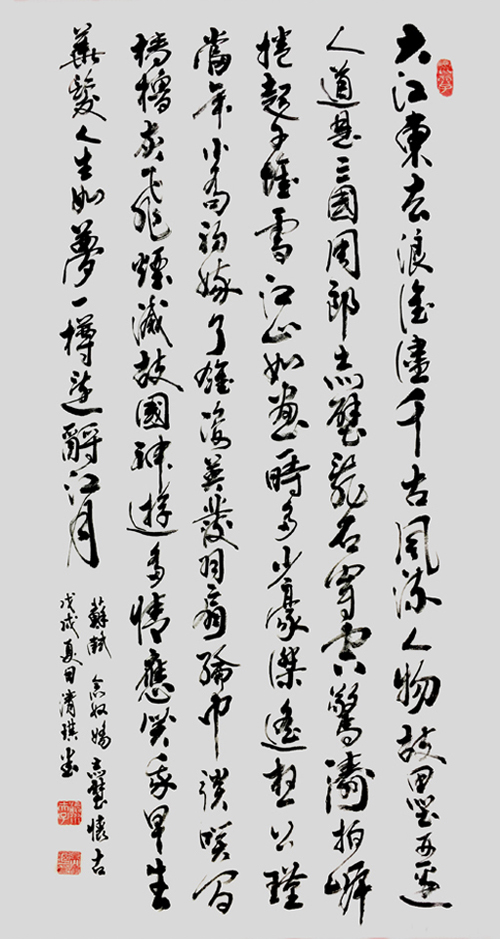 大江東去浪淘盡千古風流人物故壘西邊
人道是三國周郎赤壁亂石穿空驚濤拍岸
捲起千堆雪江山如畫一時多少豪傑遙想公瑾
當年小喬初嫁了雄姿英發羽扇綸巾談笑間
檣櫓灰飛煙滅故國神遊多情應笑我早生
華髮人生如夢一樽還酹江月
蘇軾 念奴嬌 赤壁懷古
戊戌夏日清琪書